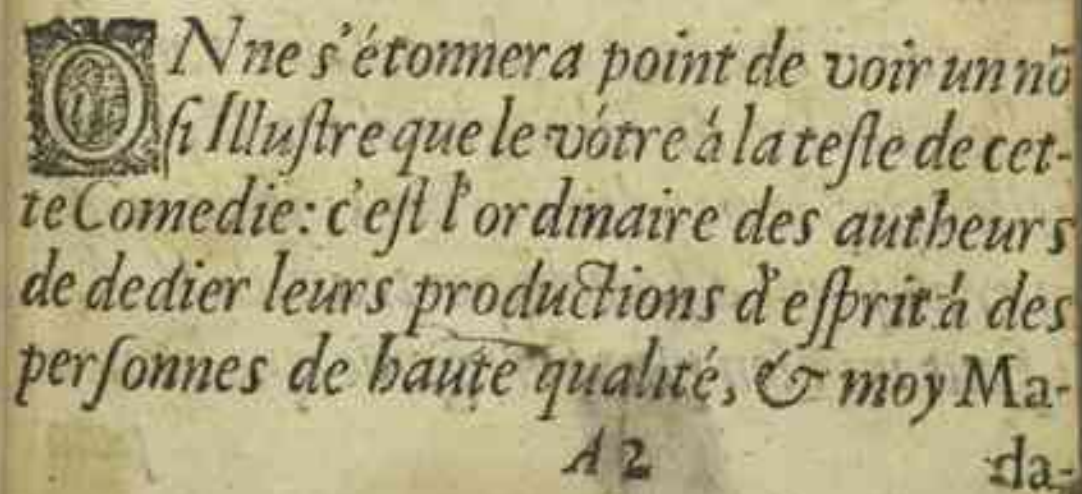 ON ne s'étonnera point de voir un nō
si Illustre que le vótre á la teste de cet-
te Comedie: c'est l'ordinaire des autheurs
de dedier leurs productions d'esprit á des
personnes de haute qualité, & moy Ma-
A 2 da-